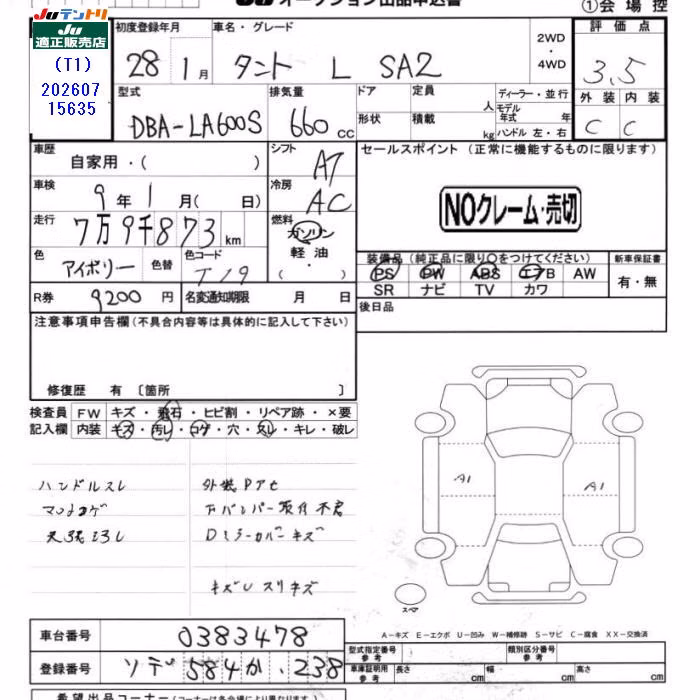 JUテントリ
JU適正販売店
(T1)
202607
15635
JU オークション出品申込書
①会場控
初度登録年月
車名・グレード
2WD
・
4WD
評価点
28 1月
タント L SA2
3.5
型式
排気量
ドア
定員
人
ディーラー・並行
外装 内装
DBA-LA600S
660 cc
形状
積載
kg
モデル年式 年
ハンドル 左・右
C C
車歴
自家用・( )
シフト
AT
セールスポイント (正常に機能するものに限ります)
車検
9年1月( 日)
冷房
AC
NOクレーム・売切
走行
7万9千873km
燃料
ガソリン
軽油
・( )
色
アイボリー
色替
色コード
T19
装備品(純正品に限り○をつけてください)
新車保証書
PS PW ABS エアB AW
SR ナビ TV カワ
有・無
R券
9200円
名変通知期限 月 日
後日品
注意事項申告欄(不具合内容等は具体的に記入して下さい)
修復歴 有 〔箇所 〕
検査員 FW キズ・飛石・ヒビ割・リペア跡・×要
記入欄 内装 キズ・汚レ・コゲ・穴・スレ・キレ・破レ
ハンドルスレ
外装Pアセ
マットコゲ
Fバンパー取付不良
天張ヨゴレ
Dミラーカバーキズ
キズUスリキズ
A1
A1
スペア
A－キズ E－エクボ U－凹み W－補修跡 S－サビ C－腐食 XX－交換済
車台番号
0383478
型式指定番号
参考
類別区分番号
登録番号
ソデ 584か・238
車庫証明用
参考
長さ cm
幅 cm
高さ cm
希望出品コーナー(コーナーは各会場により異なります)